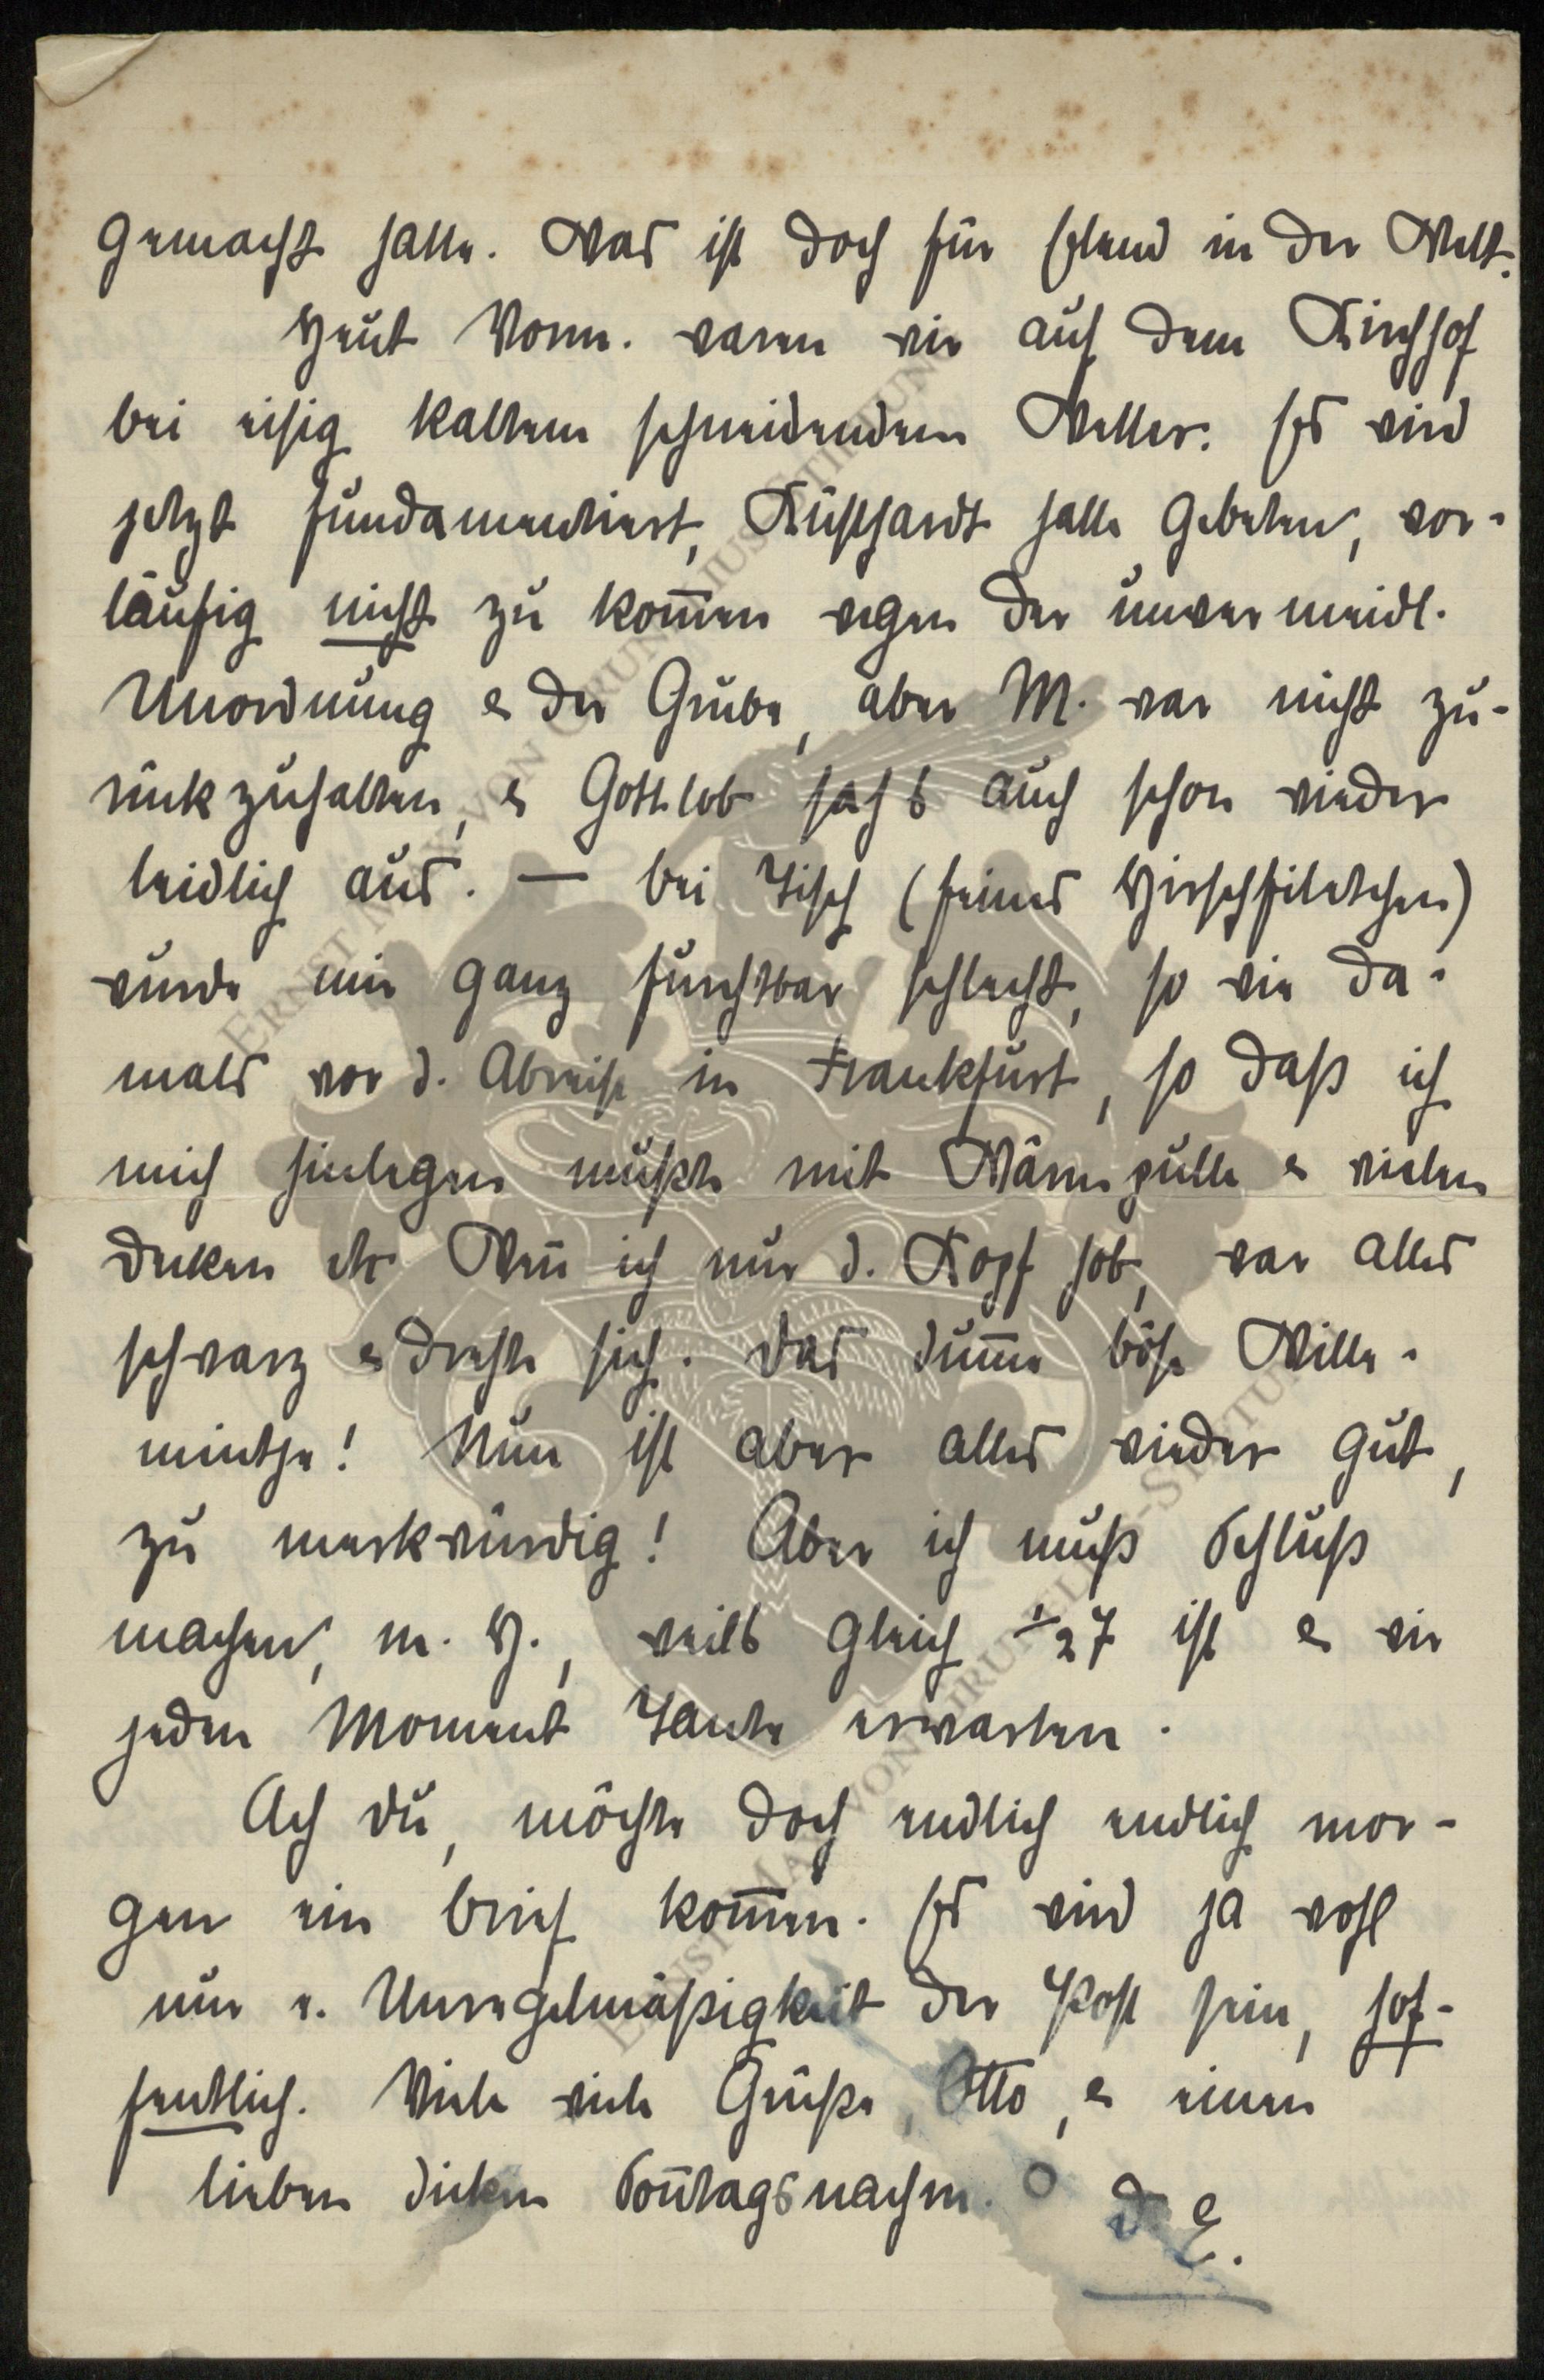 gemacht hatte. Was ist doch für Elend in der Welt.
Heut Vorm. waren wir auf dem Kirchhof
bei eisig kaltem schneidendem Wetter. Es wird
jetzt fundamentiert, Küsthardt hatte gebeten, vor-
läufig nicht zu kom̅en wegen der unvermeidl.
Unordnung u der Grube, aber M. war nicht zu-
rückzuhalten, u Gottlob sah's auch schon wieder
leidlich aus. — Bei Tisch (feines Hirschfiletchen)
wurde mir ganz furchtbar schlecht, so wie da-
mals vor d. Abreise in Frankfurt, so daß ich
mich hinlegen mußte mit Wärmpulle u vielen
Decken etc Wen̅ ich nur d. Kopf hob, war alles
schwarz u drehte sich. Das dum̅e böse Wille-
mintje! Nun ist aber alles wieder gut,
zu merkwürdig! Aber ich muß Schluß
machen, m. H., weils gleich ½7 ist u wir
jeden Moment Tante erwarten.
Ach Du, möchte doch endlich endlich mor-
gen ein Brief kom̅en. Es wird ja wohl
nur e. Unregelmäßigkeit der Post sein, hof-
fentlich. Viele viele Grüße, Otto, u einen
lieben dicken Son̅tagsnachm. O D. E.
ERNST MAX VON GRUNELIUS-STIFTUNG
ERNST MAX VON GRUNELIUS-STIFTUNG